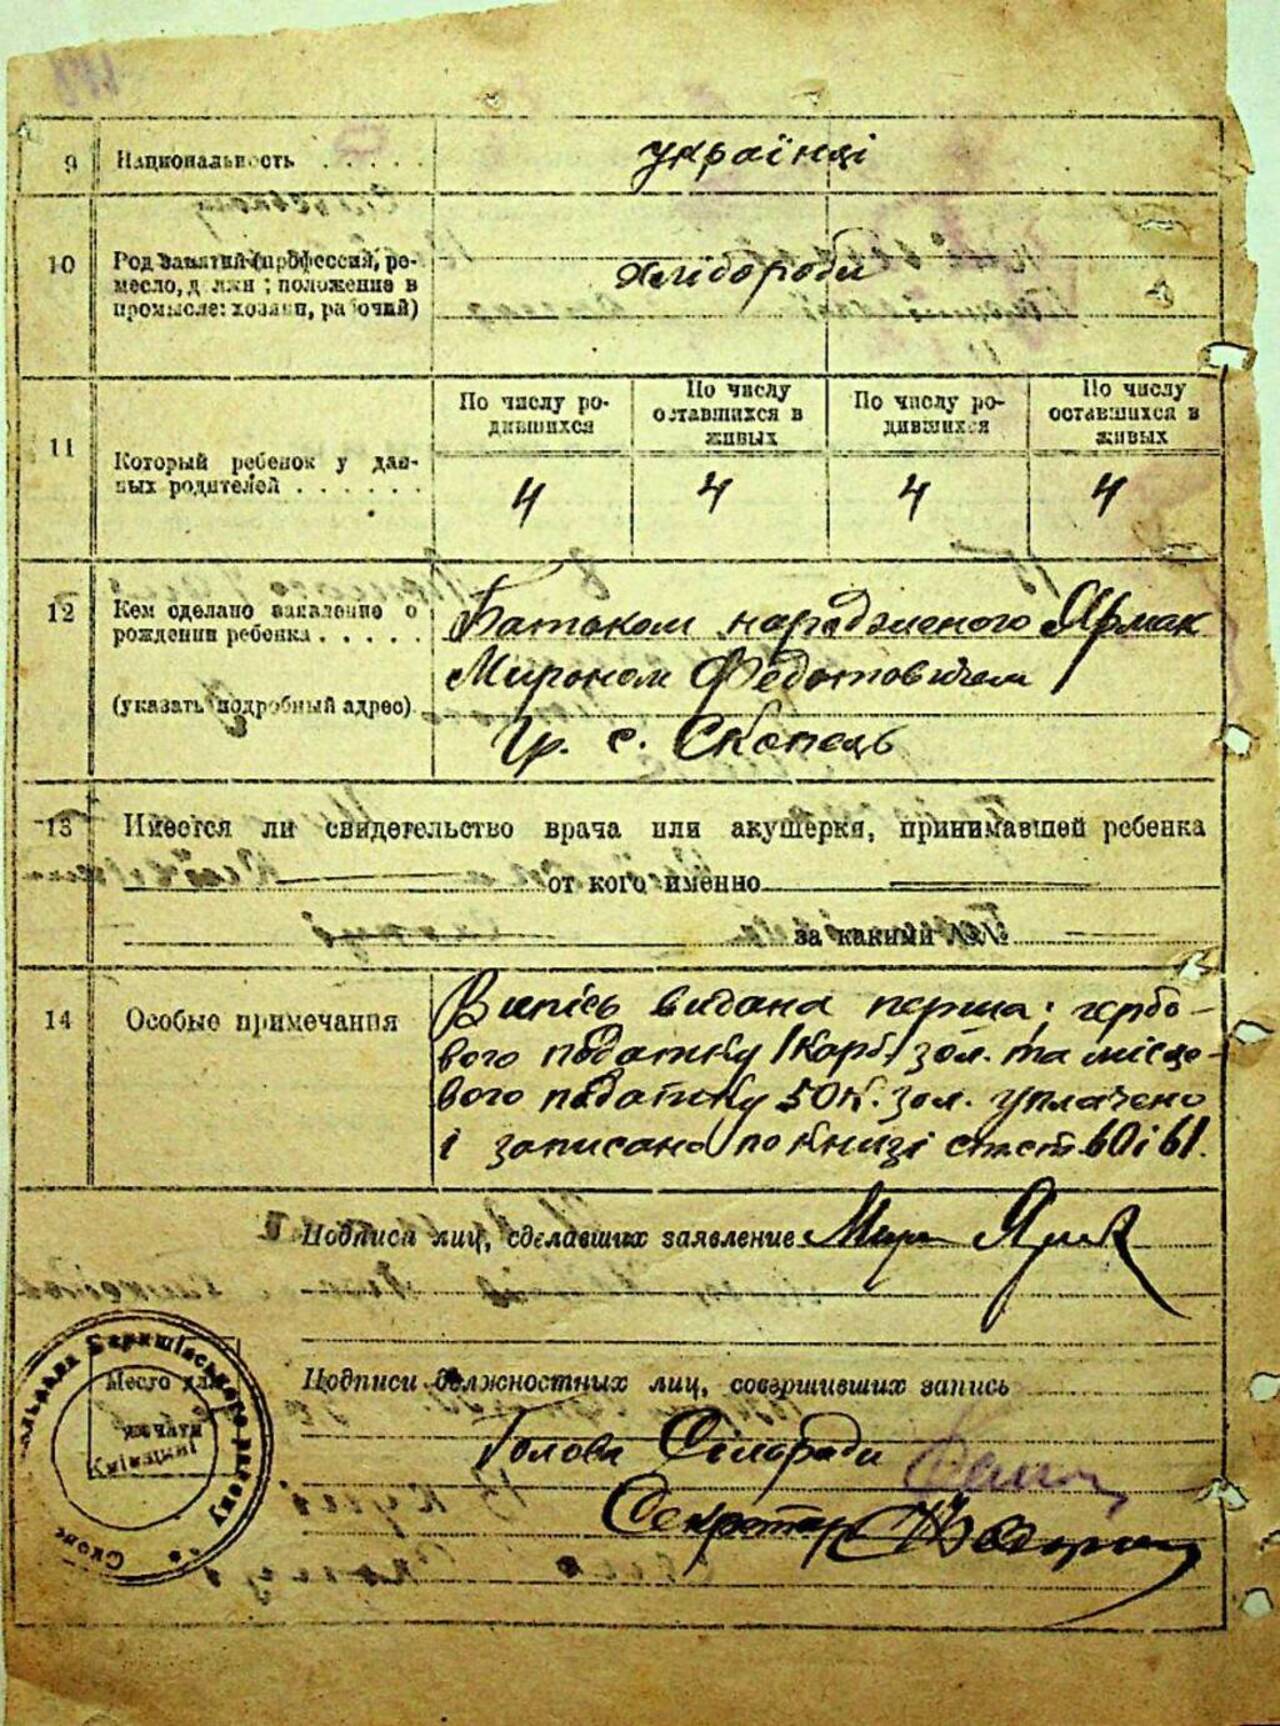 9 Национальность . . . . . українці
10 Род занятий (профессия, ре-
месло, должн; положение в
промысле: хозяин, рабочий)
хлібороби
11 Который ребенок у дан-
ных родителей . . . . . .
По числу ро-
дившихся
По числу
оставшихся в
живых
По числу ро-
дившихся
По числу
оставшихся в
живых
4 4 4 4
12 Кем сделано заявление о
рождении ребенка . . . . .
(указать подробный адрес)
Батьком народженого Ярмак
Мироном Федотовичем
Гр. с. Скопець
13 Имеется ли свидетельство врача или акушерки, принимавшей ребенка
от кого именно
за каким №
14 Особые примечания
Випісь видана перша; гербо-
вого податку 1 карб. зол. та місце-
вого податку 50 к. зол. уплачено
і записано по книзі стст. 60 і 61.
Подписи лиц, сделавших заявление
Место для
печати
Баришівського району
Київщині
Подписи должностных лиц, совершивших запись
Голова Сільради
Секретар